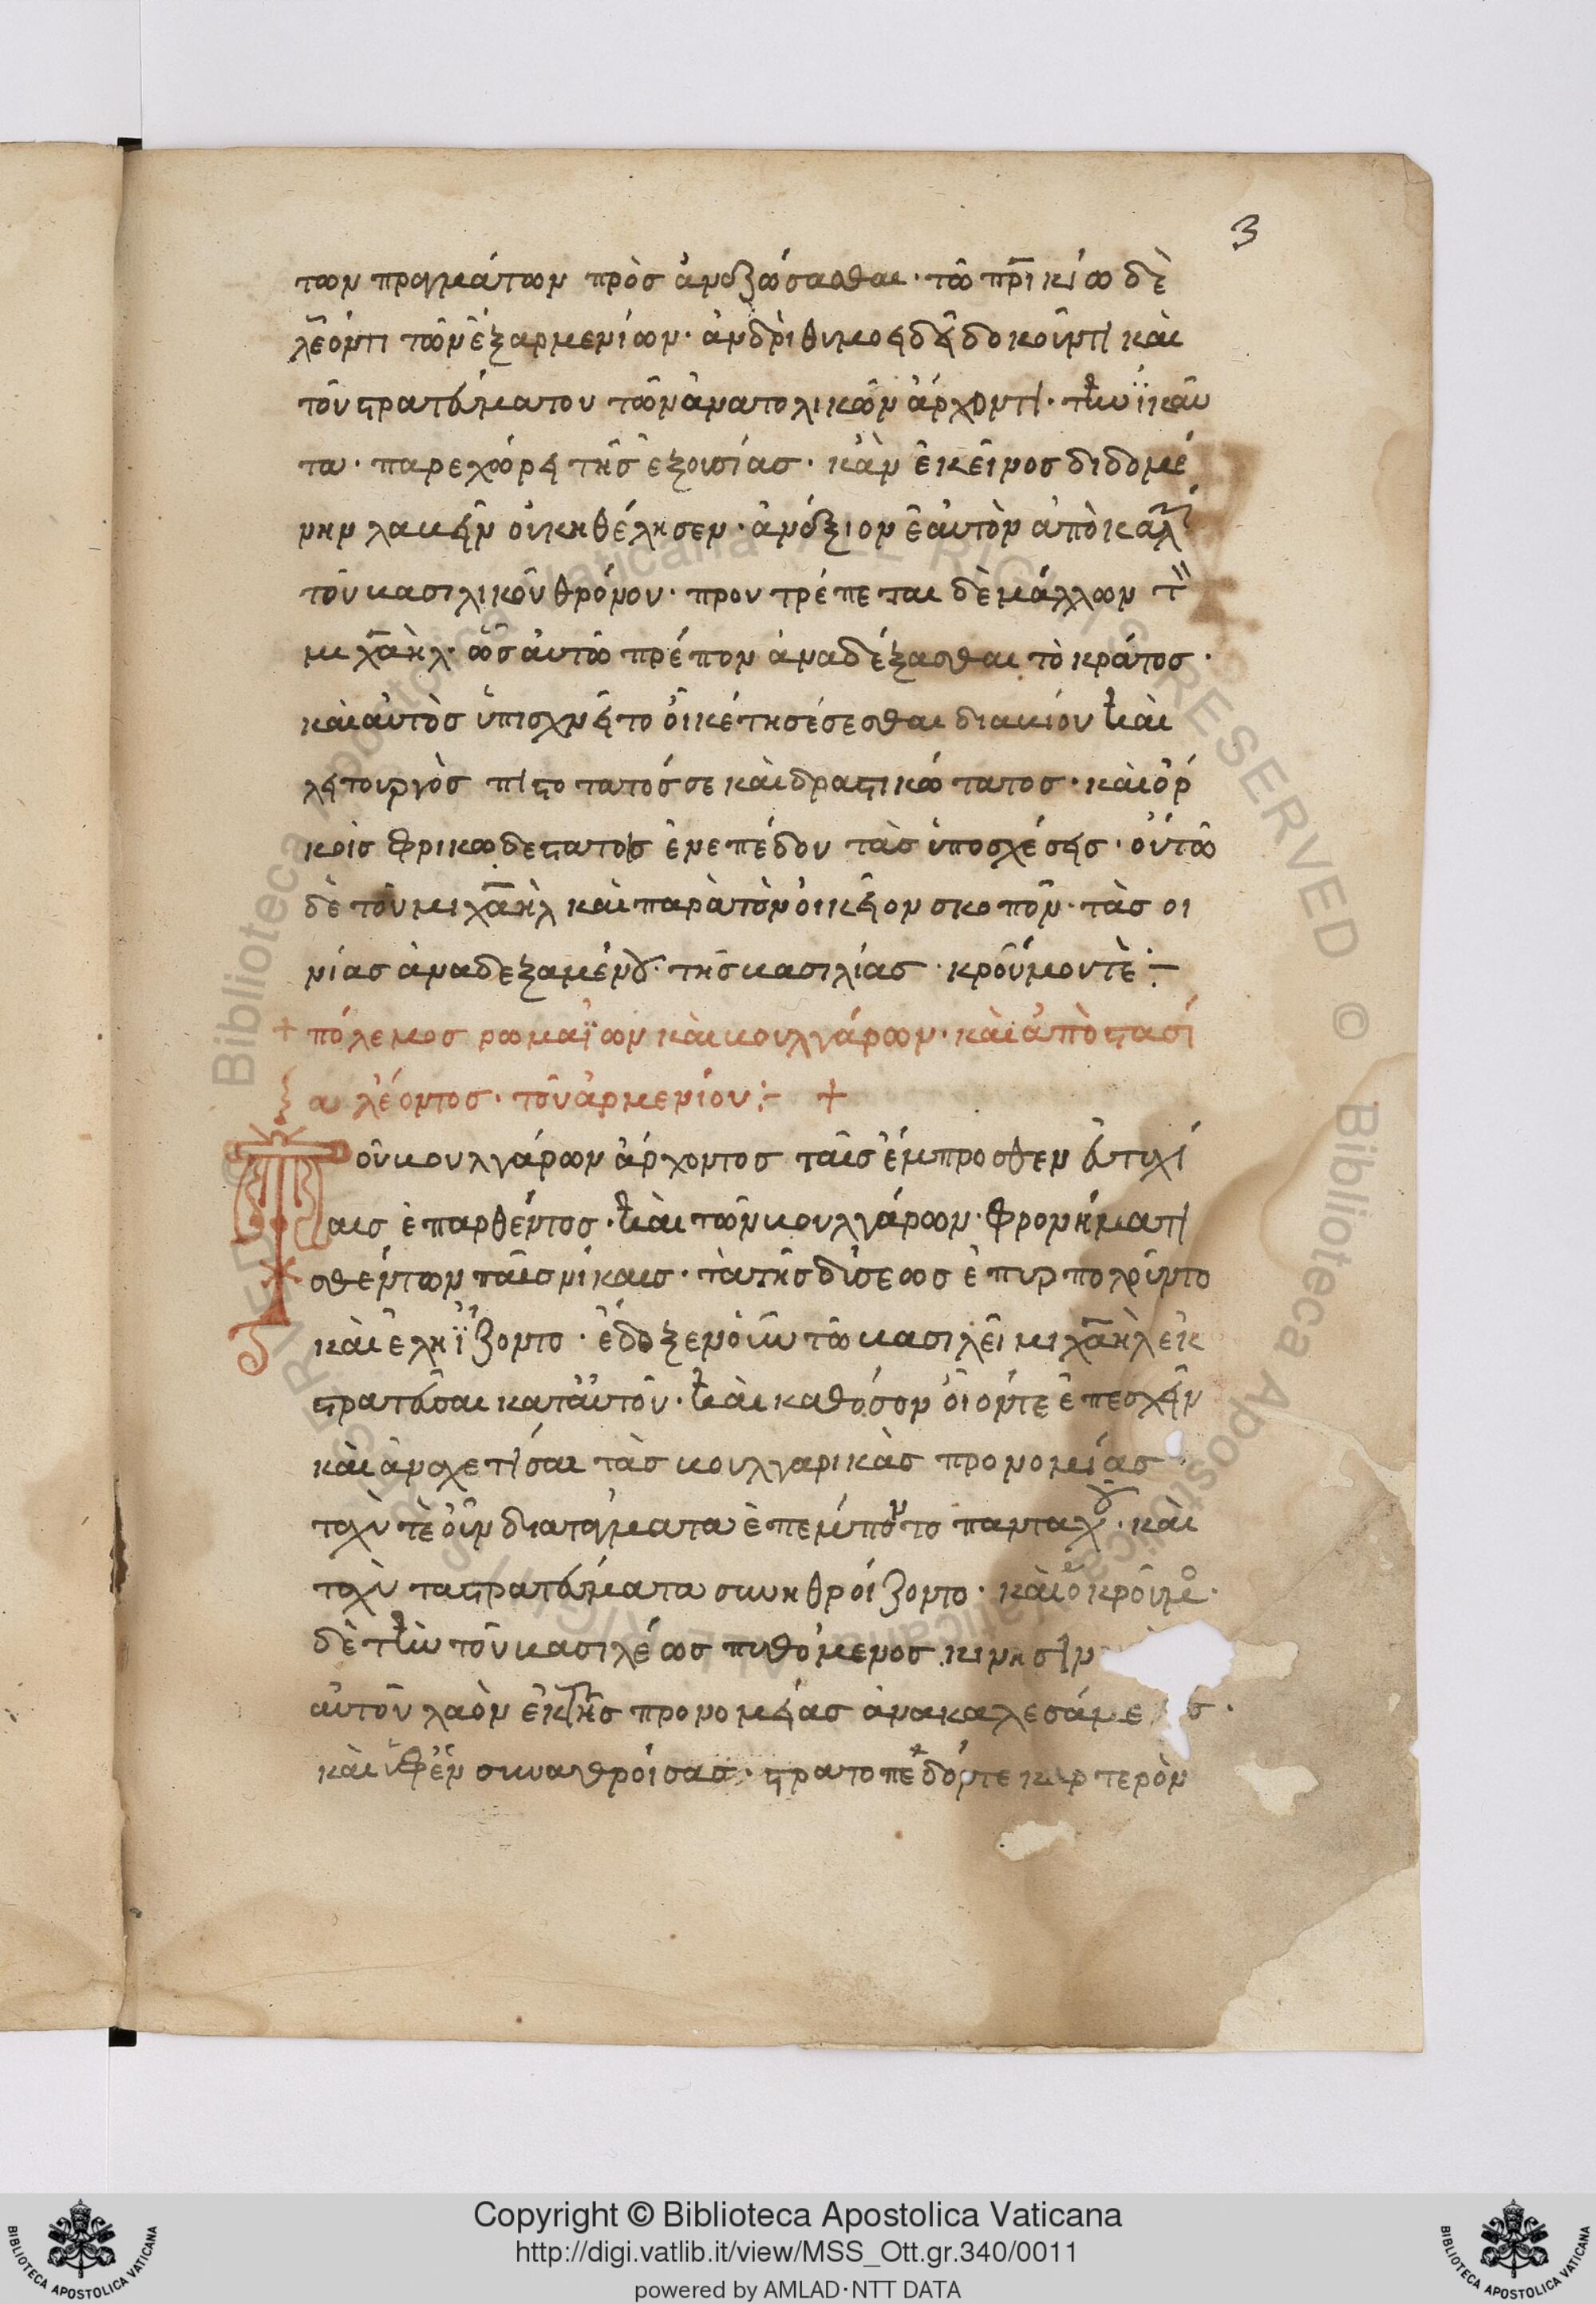 3
των πραγμάτων πρὸσ ἀνοξώσασθαι · τῶ πρικίω δὲ
λέοντι τῶν ἐξαρμενίων · ἀνδρὶ θυμοειδεῖ δοκοῦντι καὶ
τοῦ στρατεύματου τῶν ἀνατολικῶν ἄρχοντι · τὴν ϊκαυ
τα · παρεχώρει τῆσ ἐξουσίασ · κἀν ἐκεῖνοσ διδομέ
νην λαβεῖν οὐκηθέλησεν · ἀνάξιον ἑαυτὸν ἀποκαλ
τοῦ βασιλικοῦ θρόνου · προυτρέπεται δὲ μάλλων τ
μιχαὴλ · ὡσ αὐτῶ πρέπον ἀναδέξασθαι τὸ κράτοσ ·
καὶ αὐτὸσ ὑπισχνεῖτο οἰκέτησ ἔσεσθαι διαβίου καὶ
λειτουργὸσ πιστοτατόσσε καὶ δραστικώτατοσ · καὶ ὅρ
κοισ φρικωδεστατοισ ἐνεπέδου τὰσ ὑποσχέσεισ · οὕτω
δὲ τοῦ μιχαὴλ καὶ παρὰ τὸν οἰκεῖον σκοπὸν · τὰσ οι
νίασ ἀναδεξαμένου · τῆσ βασιλίασ · κροῦμοντὲ :-
+ πόλεμοσ ρωμαϊων καὶ βουλγάρων · καὶ ἀποστασί
α λέοντοσ · τοῦ ἀρμενίου :- +
Τοῦ βουλγάρων ἄρχοντοσ ταῖσ ἔμπροσθεν εὐτυχί
αισ ἐπαρθέντοσ · καὶ τῶν βουλγάρων · φρονήματι
σθέντων ταῖσ νίκαισ · τὰ τῆσ δύσεωσ ἐπυρπολοῦντο
καὶ ἐληΐζοντο · ἔδοξεν οὖν τῶ βασιλεῖ μιχαὴλ ἐκ
στρατεῦσαι κατἀυτοῦ · καὶ καθόσον οἷοντε ἐπεσχεῖν
καὶ ἀνοχετίσαι τὰσ βουλγαρικὰσ προνομίασ ·
τοχὺ τὲ οὖν διατάγματα ἐπεμπον το πανταχοῦ · καὶ
τοχὺ τα στρατεύματα συνηθροίζοντο · καὶ ὁ κροῦμο ·
δὲ τὴν τοῦ βασιλέωσ πυθόμενοσ κίνησιν
αὐτοῦ λαὸν ἐκ τῆσ προνομείασ ἀνακαλεσάμε σ ·
καὶ ὑφὲν συναθροίσασ · στρατοπεδόντε καρτερὸν
Copyright © Biblioteca Apostolica Vaticana
http://digi.vatlib.it/view/MSS_Ott.gr.340/0011
powered by AMLAD·NTT DATA